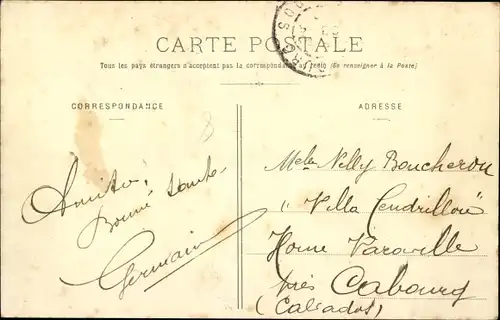 CARTE POSTALE
Tous les pays étrangers n'acceptent pas la correspondance au recto (Se renseigner à la Poste)
CORRESPONDANCE
ADRESSE
8
Amitié,
Bonne santé
Germain
Nelly Boucheron
"Villa Cendrillon"
Home Varaville
près Cabourg
(Calvados)